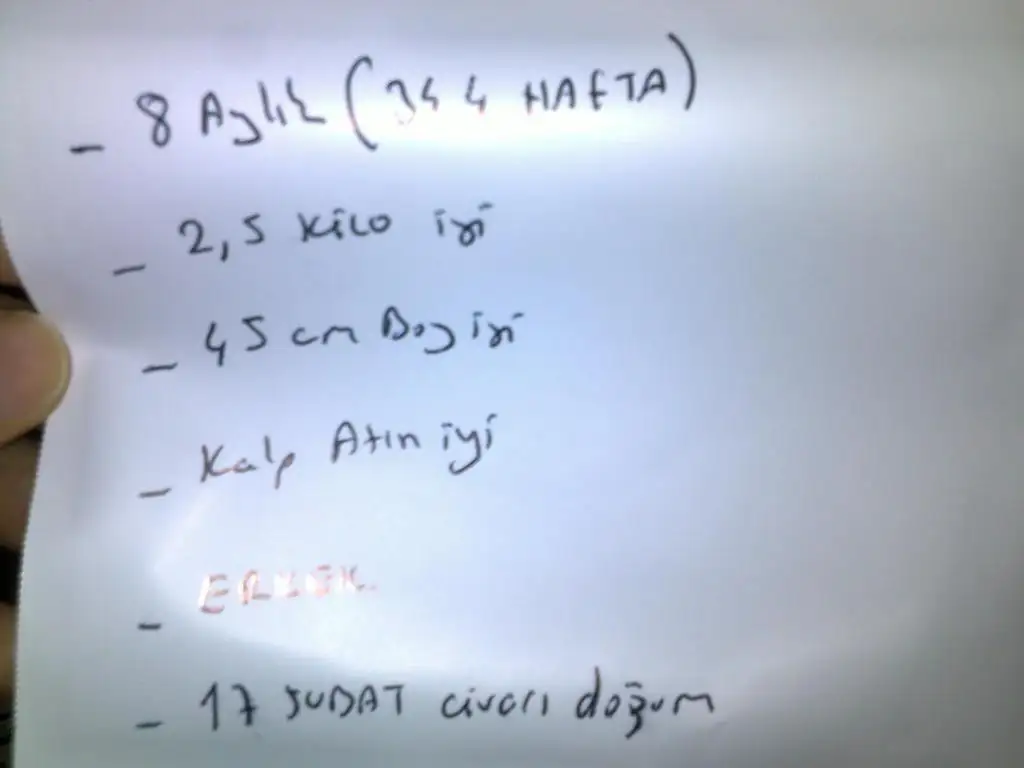 - 8 Aylık (34 4 HAFTA)
- 2,5 Kilo iyi
- 45 cm Boy iyi
- Kalp Atım iyi
- ERKEK
- 17 ŞUBAT civarı doğum